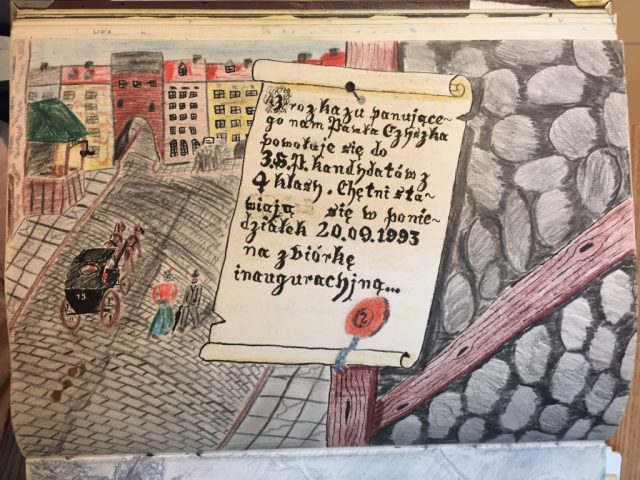 Z rozkazu panujące-
go nam Pawła Czyszka
powołuje się do
3.S.P. kandydatów z
4 klasy. Chętni sta-
wiają się w ponie-
działek 20.09.1993
na zbiórkę
inauguracyjną...
2
13